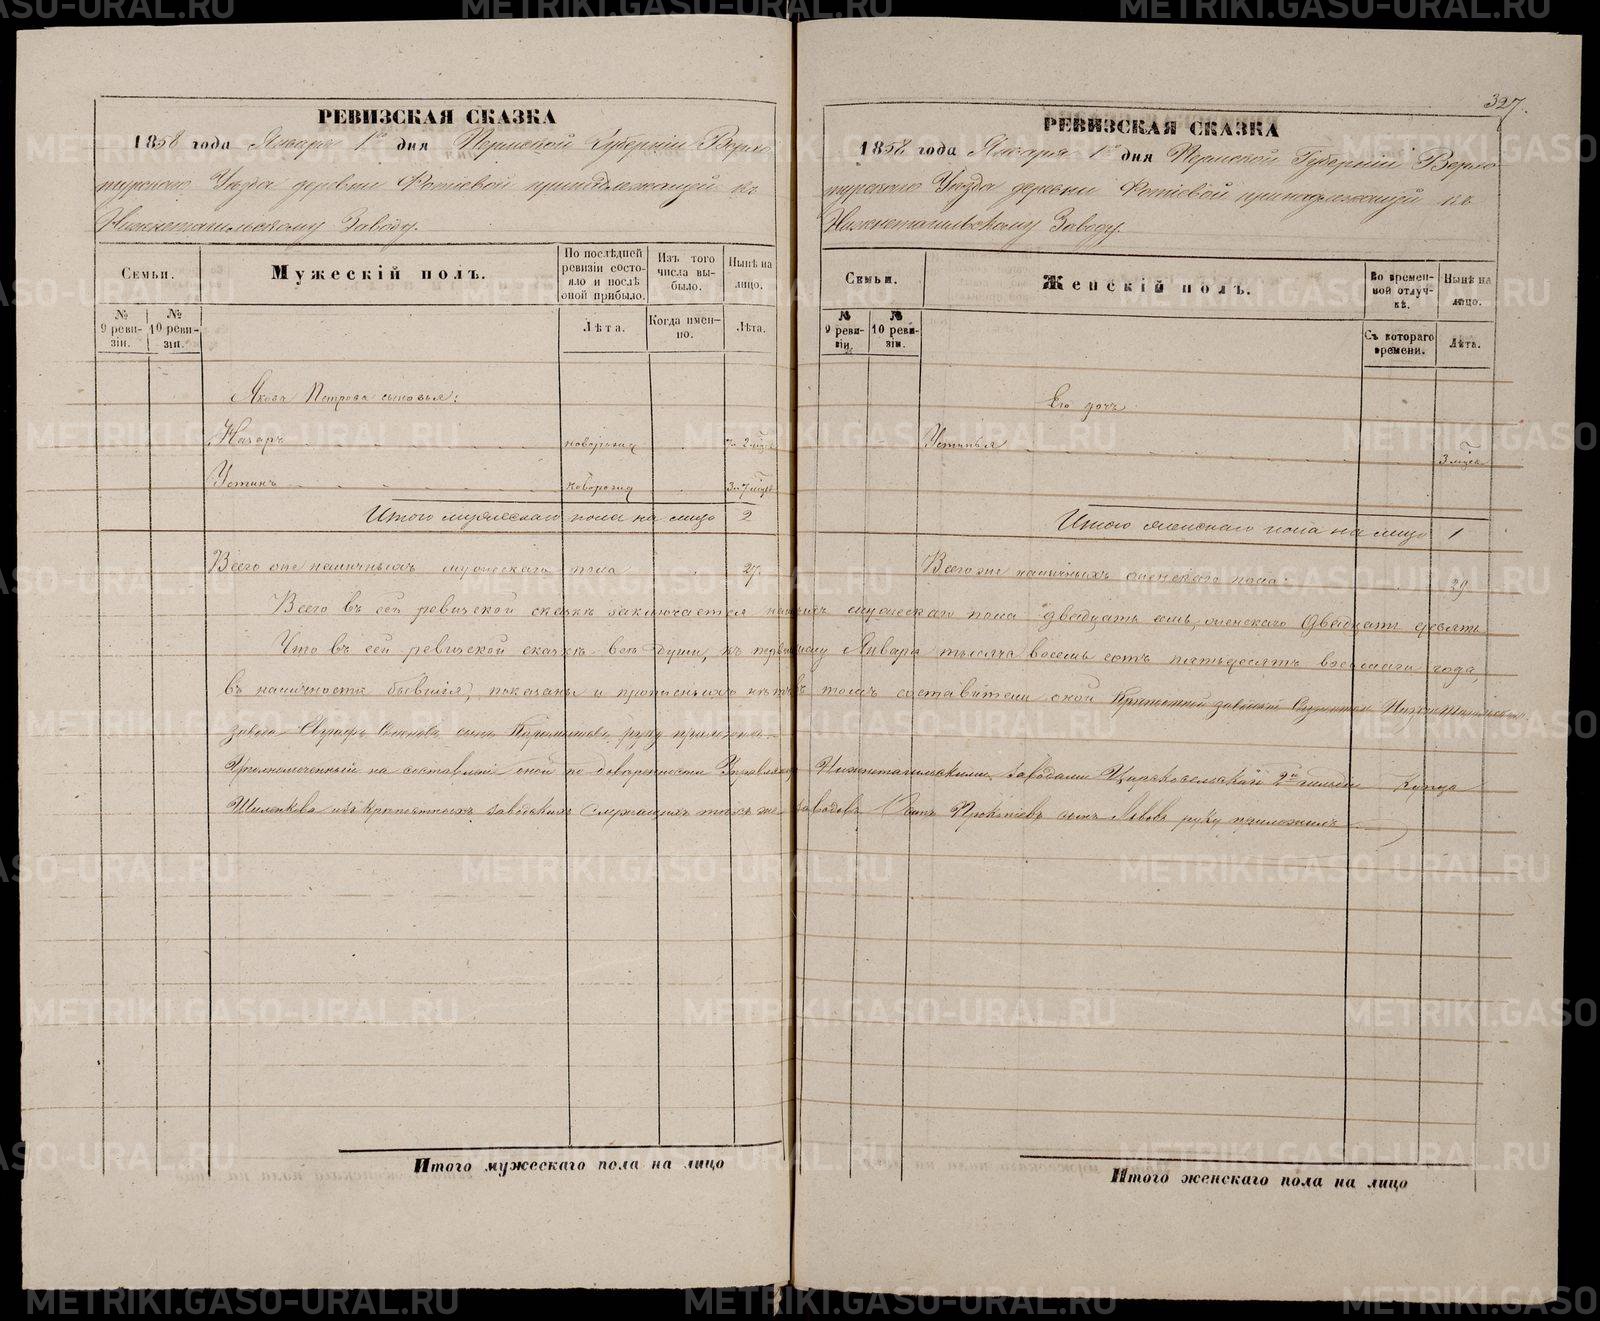 327.
РЕВИЗСКАЯ СКАЗКА
1858 года Января 1го дня Пермской Губерніи Верхо
турскаго Уѣзда деревни принадлежащей къ
Нижнетагильскому Заводу.
Семьи.
Мужескій полъ.
По послѣдней ревизіи состояло и послѣ оной прибыло.
Изъ того числа выбыло.
Нынѣ на лицо.
№ 9 ревизіи.
№ 10 ревизіи.
Лѣта.
Когда именно.
Лѣта.
Якова Петрова сыновья:
Назаръ новорожд 2 мцсе
Устинъ новорожд
Итого мужескаго пола на лицо 2
Всего наличныхъ мужескаго пола 27.
РЕВИЗСКАЯ СКАЗКА
1858 года Января 1го дня Пермской Губерніи Верхо
турскаго Уѣзда деревни принадлежащей къ
Нижнетагильскому Заводу.
Семьи.
Женскій полъ.
Во временной отлучкѣ.
Нынѣ на лицо.
№ 9 ревизіи.
№ 10 ревизіи.
Съ котораго времени.
Лѣта.
Его дочь
Устинья 3 мцса
Итого женскаго пола на лицо 1
Всего же наличныхъ женскаго пола 29
Всего въ сей ревизской сказкѣ заключается мужескаго пола двадцать семь, женскаго двадцать девять
Что въ сей ревизской сказкѣ всѣ души, къ первому Января тысяча восемь сотъ пятьдесятъ восьмаго года,
въ наличности бывшія, показаны и прописныхъ нѣтъ въ томъ составители оной Нижнетагильскаго
завода руку приложилъ.
Уполномоченный на составленіе оной по довѣренности Нижнетагильскими заводами Царскосельскій 2й гильдіи Купца
изъ крѣпостныхъ заводскихъ служащихъ тѣхъ же заводовъ сынъ Львовъ руку приложилъ
Итого мужескаго пола на лицо
Итого женскаго пола на лицо
METRIKI.GASO-URAL.RU